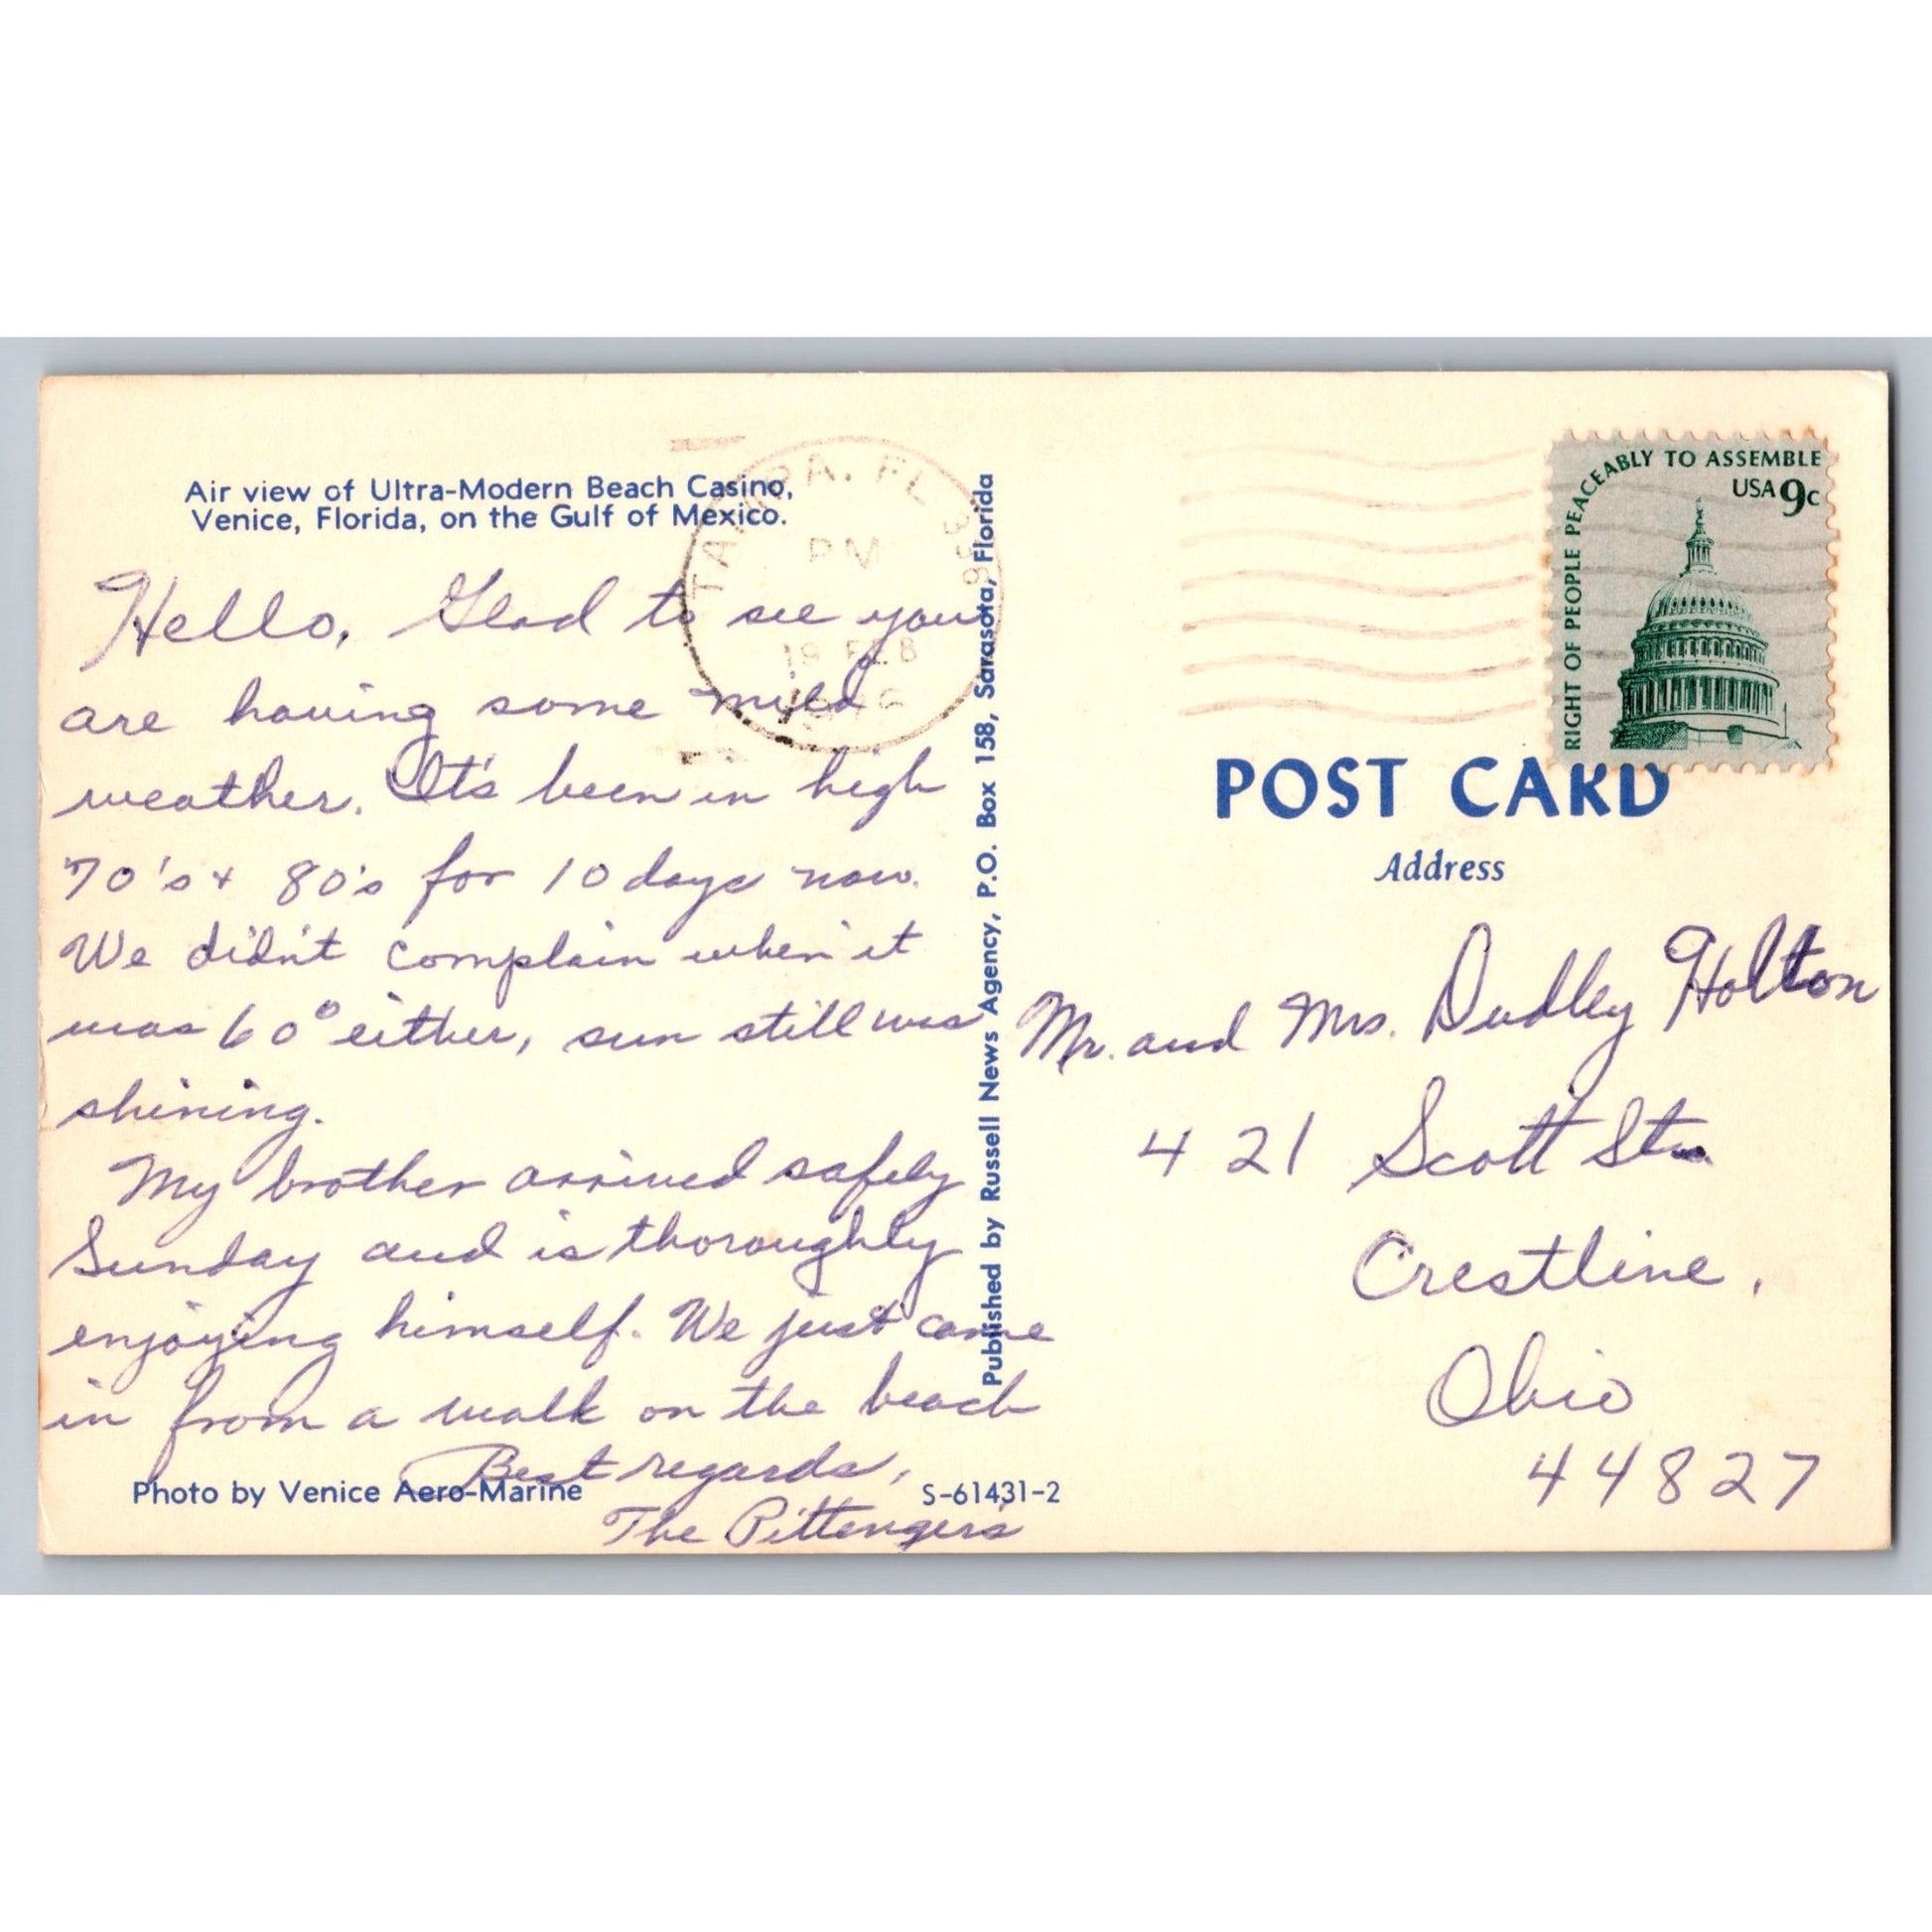 Air view of Ultra-Modern Beach Casino,
Venice, Florida, on the Gulf of Mexico.
Hello, Glad to see you
are having some mild
weather. It's been in high
70's + 80's for 10 days now.
We didn't complain when it
was 60° either, sun still was
shining.
My brother arrived safely
Sunday and is thoroughly
enjoying himself. We just came
in from a walk on the beach
Best regards,
The Pittenger's
Photo by Venice Aero-Marine
S-61431-2
TAMPA, FL
PM
Published by Russell News Agency, P.O. Box 158, Sarasota, Florida
RIGHT OF PEOPLE PEACEABLY TO ASSEMBLE
USA 9c
POST CARD
Address
Mr. and Mrs. Dudley Holton
421 Scott St.
Crestline,
Ohio
44827